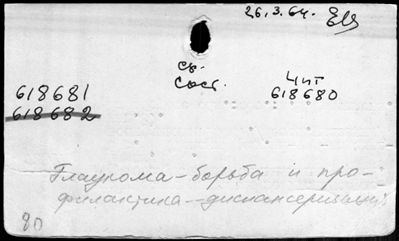 26.3.64.
св.
сост.
618681
Чит
618680
618682
Глаукома - борьба и про-
филактика - диспансеризация
80